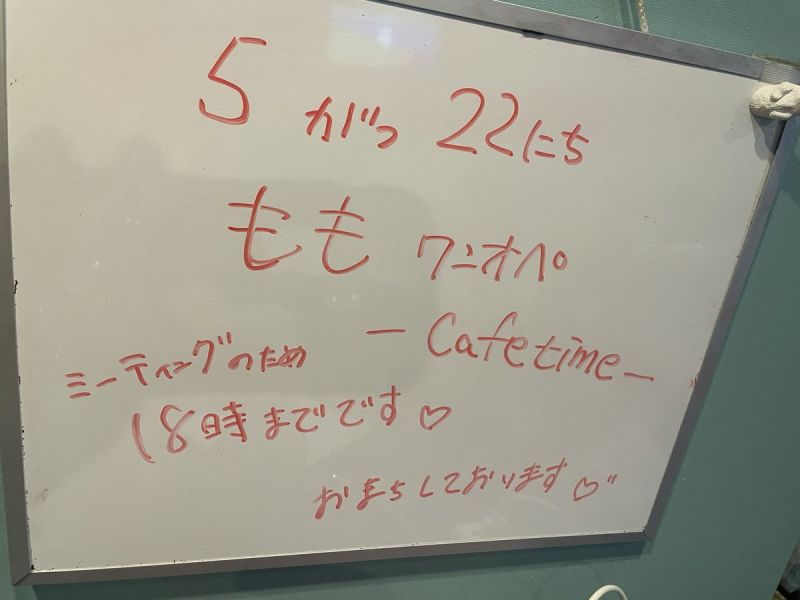 5がつ22にち
もも ワンオペ
－Cafetime－
ミーティングのため
18時までです♡
おまちしております♡"